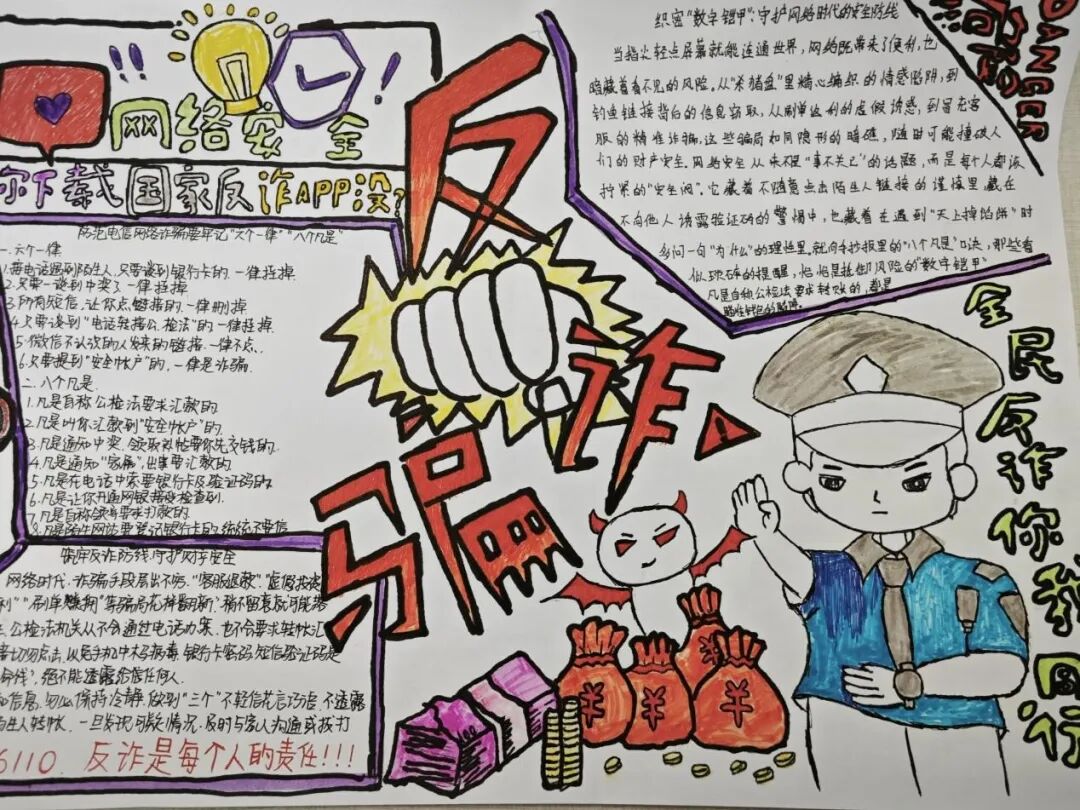 网络安全
你下载国家反诈APP没?
防范电信网络诈骗要牢记"六个一律""八个凡是"
一.六个一律
1.接电话遇到陌生人,只要谈到银行卡的.一律挂掉
2.只要一谈到中奖了一律挂掉
3.所有短信,让你点链接的.一律删掉
4.只要谈到"电话转接公检法"的一律挂掉.
5.微信不认识的人发来的链接.一律不点.
6.只要提到"安全帐户"的.一律是诈骗.
二.八个凡是.
1.凡是自称公检法要求汇款的
2.凡是叫你汇款到"安全帐户"的.
3.凡是通知中奖.领取补帖要你先交钱的.
4.凡是通知"家属".出事要汇款的
5.凡是在电话中索要银行卡及验证码的.
6.凡是让你开通网银接受检查的.
7.凡是自称领导要求打款的.
8.凡是陌生网站要登记银行卡的.统统不要信
筑牢反诈防线.守护网络安全
网络时代.诈骗手段层出不穷."客服退款"."虚假投资
""刷单"等骗局花样翻新.稍不留意
公检法机关从不会通过电话办案.也不会要求转帐汇
切勿点击.以免手机中木马病毒.银行卡密码.短信验证码是
命线".绝不能透露给任何人.
信息.务必保持冷静.做到"三个"不轻信花言巧语.不透露
生人转帐.一旦发现可疑情况.及时与家人沟通或拨打
6110.反诈是每个人的责任!!!
反诈骗
织密"数字铠甲":守护网络时代的安全防线
当指尖轻点屏幕就能连通世界,网络既带来了便利,也
暗藏着看不见的风险。从"杀猪盘"里精心编织的情感陷阱,到
钓鱼链接背后的信息窃取,从刷单返利的虚假诱惑,到冒充客
服的精准诈骗,这些骗局如同隐形的暗礁,随时可能撞破人
们的财产安全.网络安全从来不是"事不关己"的话题,而是每个人都该
拧紧的"安全阀".它藏着不随意点击陌生人链接的谨慎里.藏在
不向他人透露验证码的警惕中,也藏着在遇到"天上掉馅饼"时
多问一句"为什么"的理性里.就向手抄报里的"八个凡是"口诀,那些看
似琐碎的提醒,恰恰是抵御风险的"数字铠甲"
凡是自称公检法要求转账的,都是
DANGER
全民反诈你我同行
¥
¥
¥